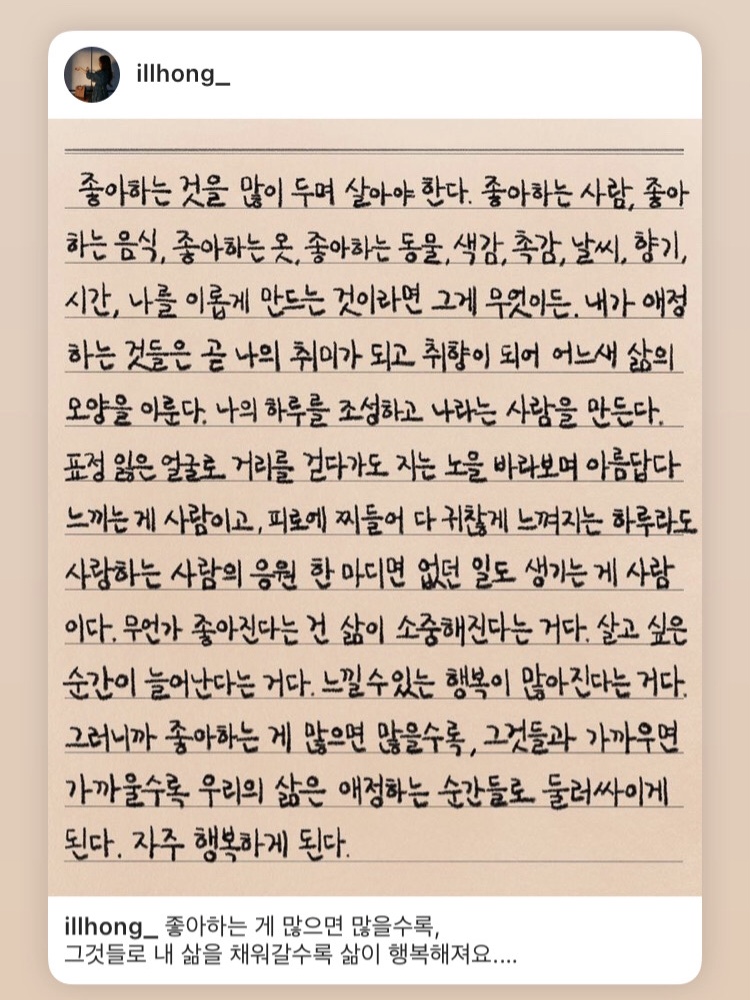 illhong_
좋아하는 것을 많이 두며 살아야 한다. 좋아하는 사람, 좋아
하는 음식, 좋아하는 옷, 좋아하는 동물, 색감, 촉감, 날씨, 향기,
시간, 나를 이롭게 만드는 것이라면 그게 무엇이든. 내가 애정
하는 것들은 곧 나의 취미가 되고 취향이 되어 어느새 삶의
모양을 이룬다. 나의 하루를 조성하고 나라는 사람을 만든다.
표정 잃은 얼굴로 거리를 걷다가도 지는 노을 바라보며 아름답다
느끼는 게 사람이고, 피로에 찌들어 다 귀찮게 느껴지는 하루라도
사랑하는 사람의 응원 한 마디면 없던 힘도 생기는 게 사람
이다. 무언가 좋아진다는 건 삶이 소중해진다는 거다. 살고 싶은
순간이 늘어난다는 거다. 느낄 수 있는 행복이 많아진다는 거다.
그러니까 좋아하는 게 많으면 많을수록, 그것들과 가까우면
가까울수록 우리의 삶은 애정하는 순간들로 둘러싸이게
된다. 자주 행복하게 된다.
illhong_ 좋아하는 게 많으면 많을수록,
그것들로 내 삶을 채워갈수록 삶이 행복해져요....